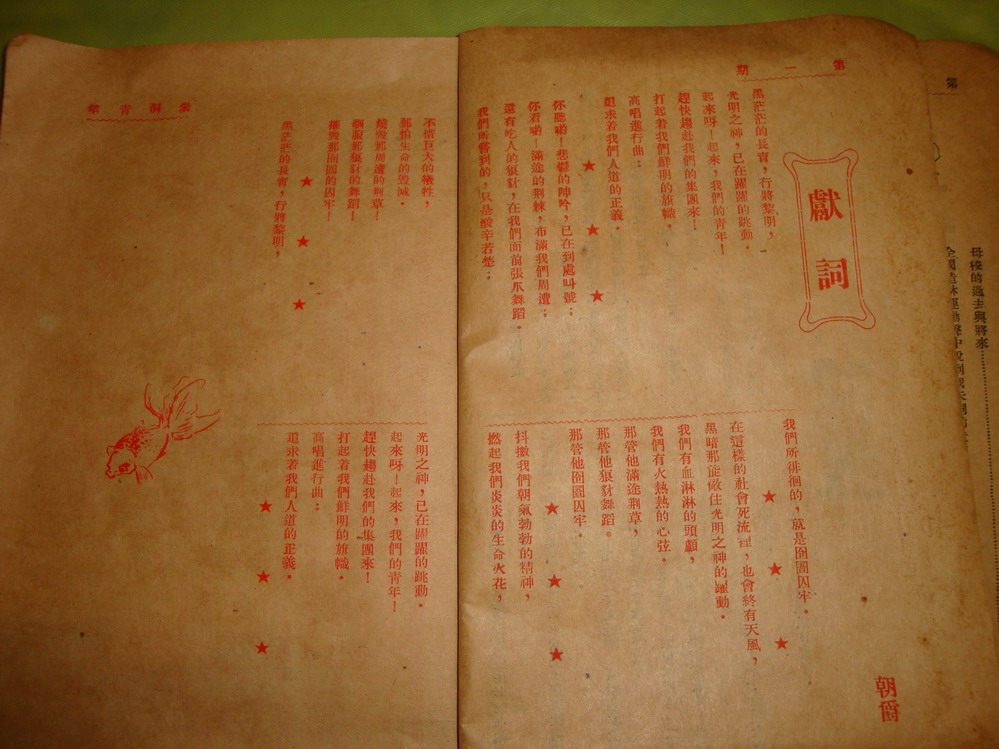 第
母校的過去與將來
第一期
獻詞
朝爾
黑茫茫的長宵，行將黎明，
光明之神，已在躍躍的跳動。
起來呀！起來，我們的青年！
趕快趨赴我們的集團來！
打起着我們鮮明的旗幟。
高唱進行曲：
追求着我們人道的正義。
★ ★ ★
你聽喲！悲鬱的陣吟，已在到處叫號；
你看喲！滿途的荆棘，布滿我們周遭；
還有吃人的狼豺，在我們面前張爪舞蹈。
我們所嘗到的，只是酸辛若楚；
我們所徘徊的，就是囹圄囚牢。
★ ★ ★
在這樣的社會死流裡，也會終有天風，
黑暗那能敵住光明之神的躍動。
我們有血淋淋的頭顱，
我們有火熱熱的心弦。
那管他滿途荆草，
那管他狼豺舞蹈。
那管他囹圄囚牢。
★ ★ ★
抖擻我們朝氣勃勃的精神，
燃起我們炎炎的生命火花，
不惜巨大的犧牲，
那怕生命的毀滅。
燒毀那周遭的荆草！
馴服那狼豺的舞蹈！
摧毀那囹圄的囚牢！
★ ★ ★
黑茫茫的長宵，行將黎明，
光明之神，已在躍躍的跳動。
起來呀！起來，我們的青年！
趕快趨赴我們的集團來！
打起着我們鮮明的旗幟。
高唱進行曲：
追求着我們人道的正義。
★ ★ ★